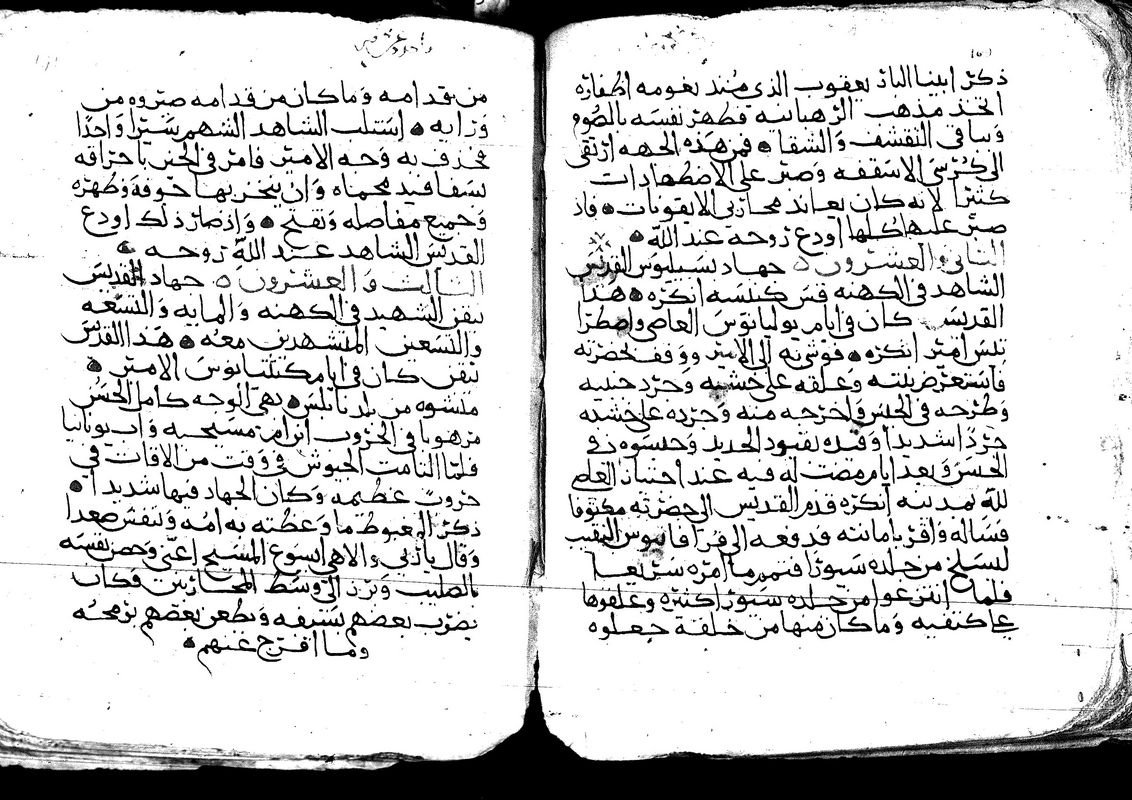 ذكر ابينا البار يعقوب الذي مند نعومه اظفاره
اتخذ مذهب الرهبانيه فطهر نفسه بالصوم
وساق التقشف والشقا • فمن هذه الجهه ارتقى
الى كرسي الاسقفه وصبر على الاضطهادات
كثيرا لانه كان يعاند محاربي الايقونات • فاذ
صبر عليها كلها اودع روحه عند الله •
الثاني والعشرون ٥ جهاد بسيليوس القديس
الشاهد في الكهنه قس كنيسه انكره • هذا
القديس كان في ايام يوليانوس العاصي واصطرا
تلس امير انكره • فوشي به الى الامير ووقف لحضرته
فاستعر صربلته وعلقه على خشبه وجرد جنبيه
وطرحه في الحبس واخرجه منه وجرده على خشبه
جردا شديدا وقيده بقيود الحديد وحبسوه في
الحبس وبعد ايام مضت له فيه عند اجتياز العاصي
لله بمدينه انكره قدم القديس الى حضرته مكتوفا
فساله واقر بامانته فدفعه الى فرافانيوس النقيب
ليسلخ من جلده سيورا فتمم ما امره سريعا
فلما انتزعوا من جلده سيورا كثيره وعلقوها
على كتفيه وما كان منها من خلفه جعلوه
من قدامه وما كان من قدامه صيروه من
ورايه • استلب الشاهد الشهم سيرا واحدا
فحذف به وجه الامير فامر في الحين باحراقه
بسفافيد محماه وان ينخز بها جوفه وظهره
وجميع مفاصله وتفتح • واذ صار ذلك اودع
القديس الشاهد عند الله روحه •
الثالث والعشرون ٥ جهاد القديس
نيقن الشهيد في الكهنه والمايه والتسعه
والتسعين المتشهدين معه • هذا القديس
نيقن كان في ايام كنتليانوس الامير •
منشوه من بلد نابلس • بهي الوجه كامل الحسن
مرهوبا في الحروب ابن ام مسيحيه واب يونانيا
فلما التامت الجيوش في وقت من الاوقات في
حروب عظيمه وكان الجهاد فيها شديدا •
ذكر المغبوط ما وعظته به امه وتنفس صعدا
وقال يا ربي والاهي ايسوع المسيح اعني وحصن نفسه
بالصليب وبرز الى وسط المحاربين فكان
يضرب بعضهم بسيفه ويطعن بعضهم برمحه
وما افرج عنهم •